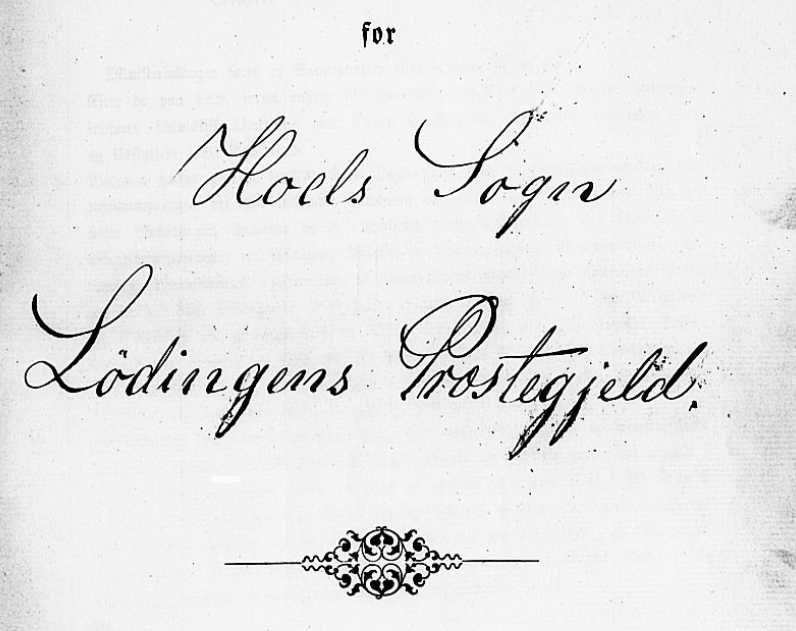 for
Hoels Sogn
Lödingens Prostegjeld.